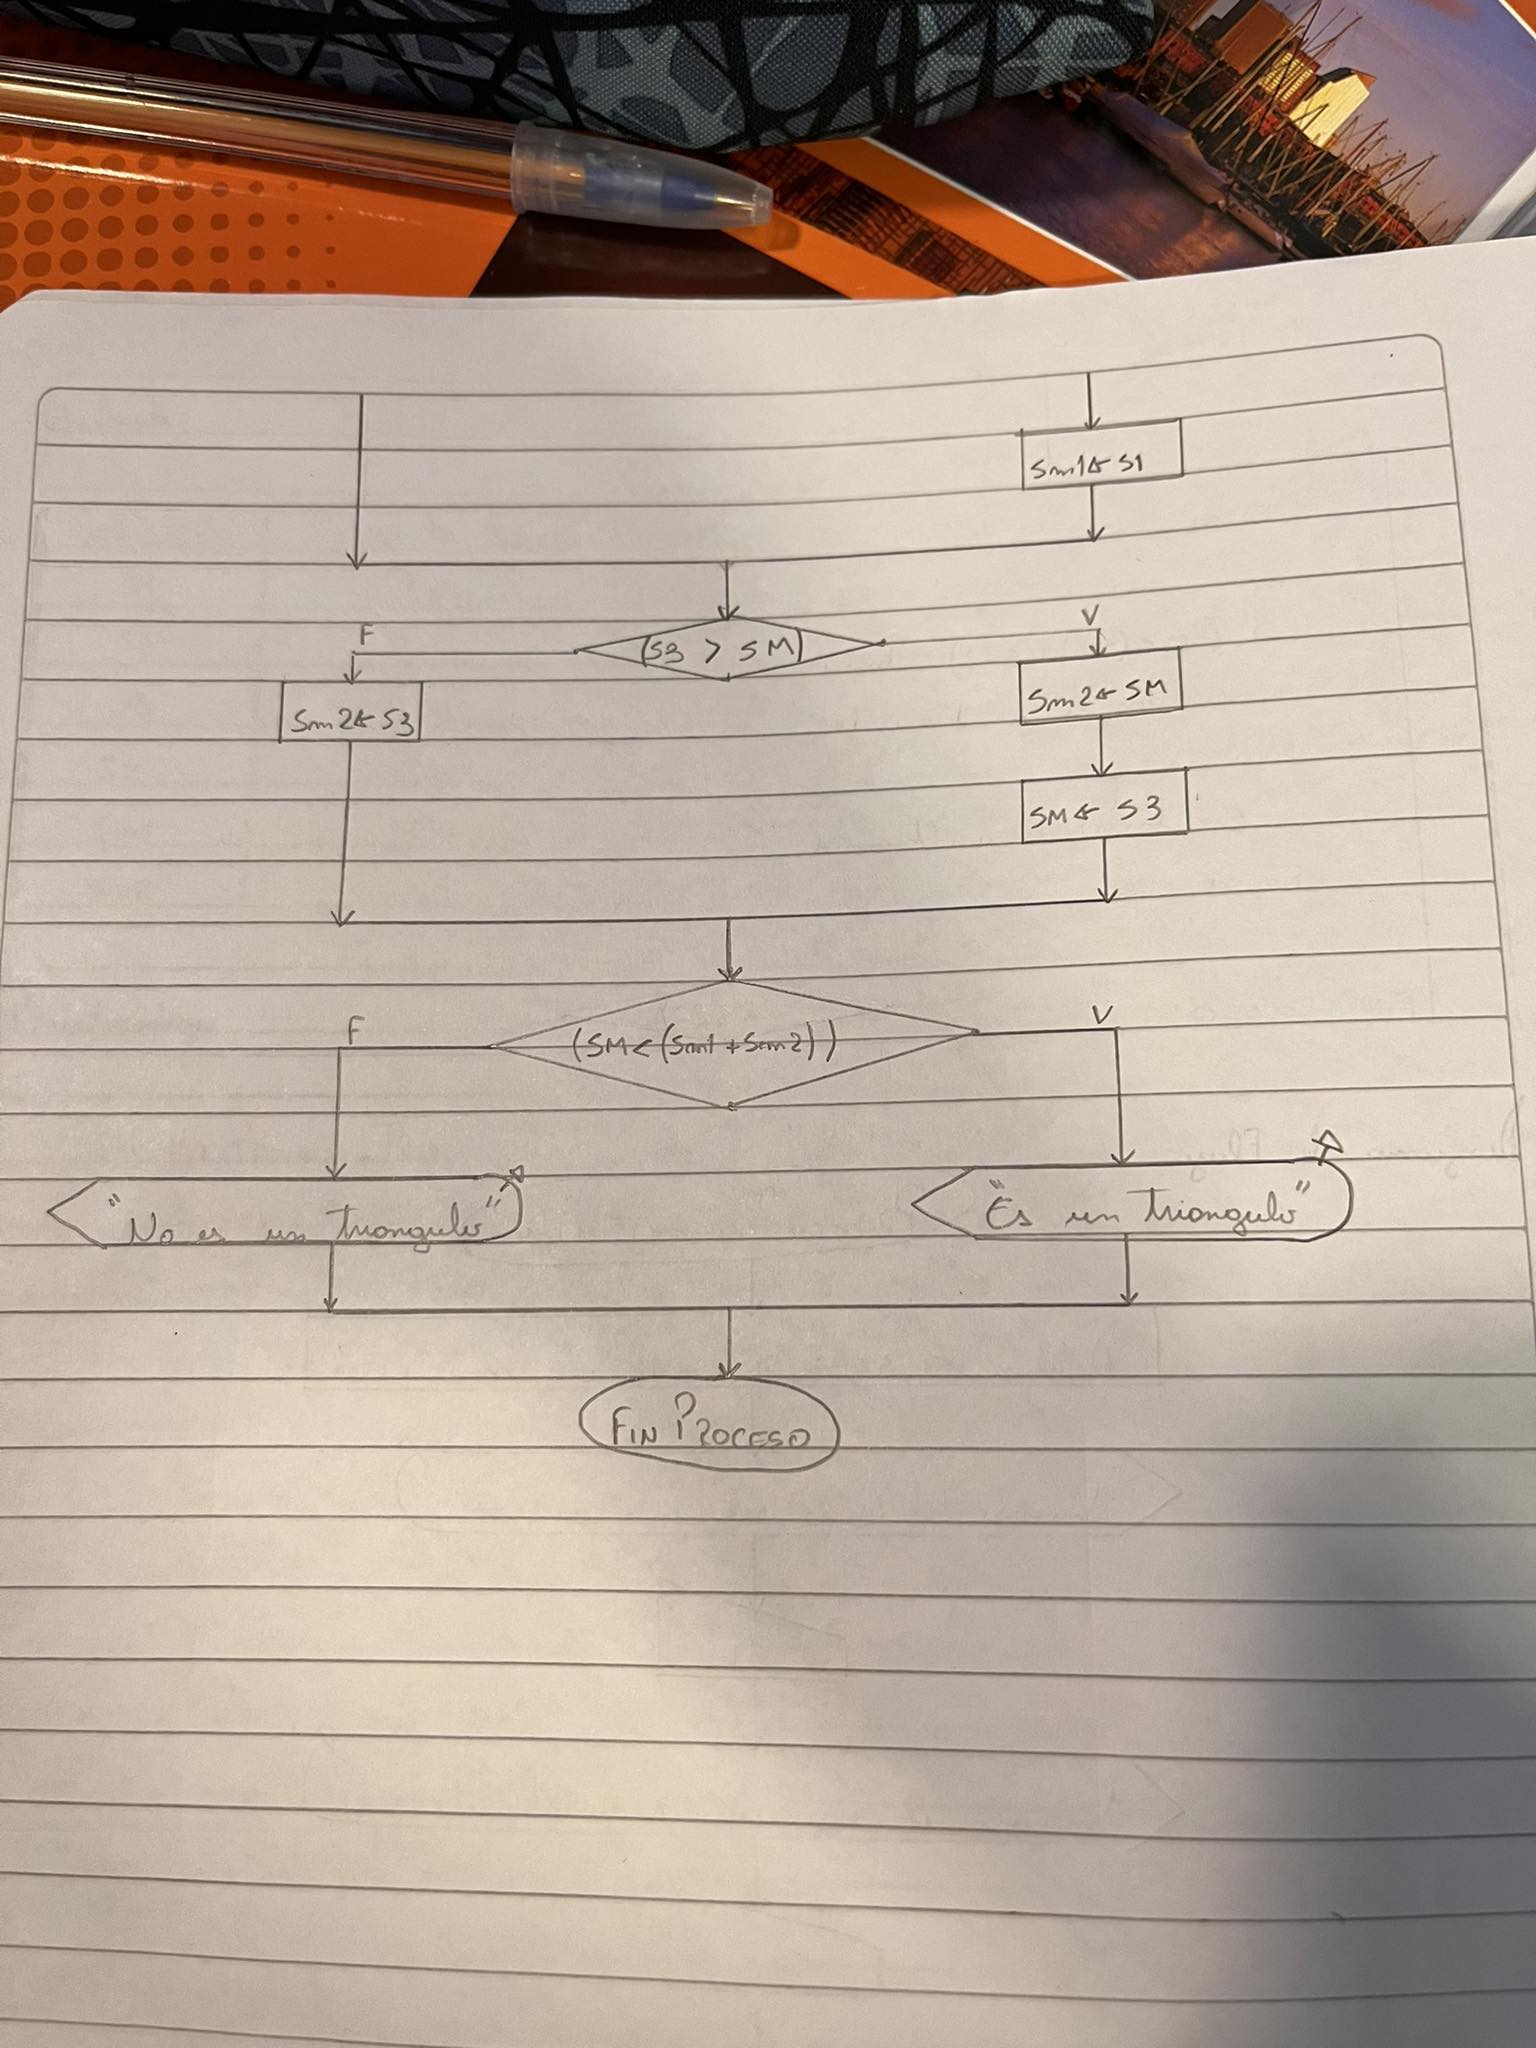 Sm1← S1
F
(S3 > SM)
V
Sm2← S3
Sm2← SM
SM← S3
F
(SM< (Sm1 + Sm2))
V
"No es un Triangulo"
"Es un Triangulo"
FIN PROCESO